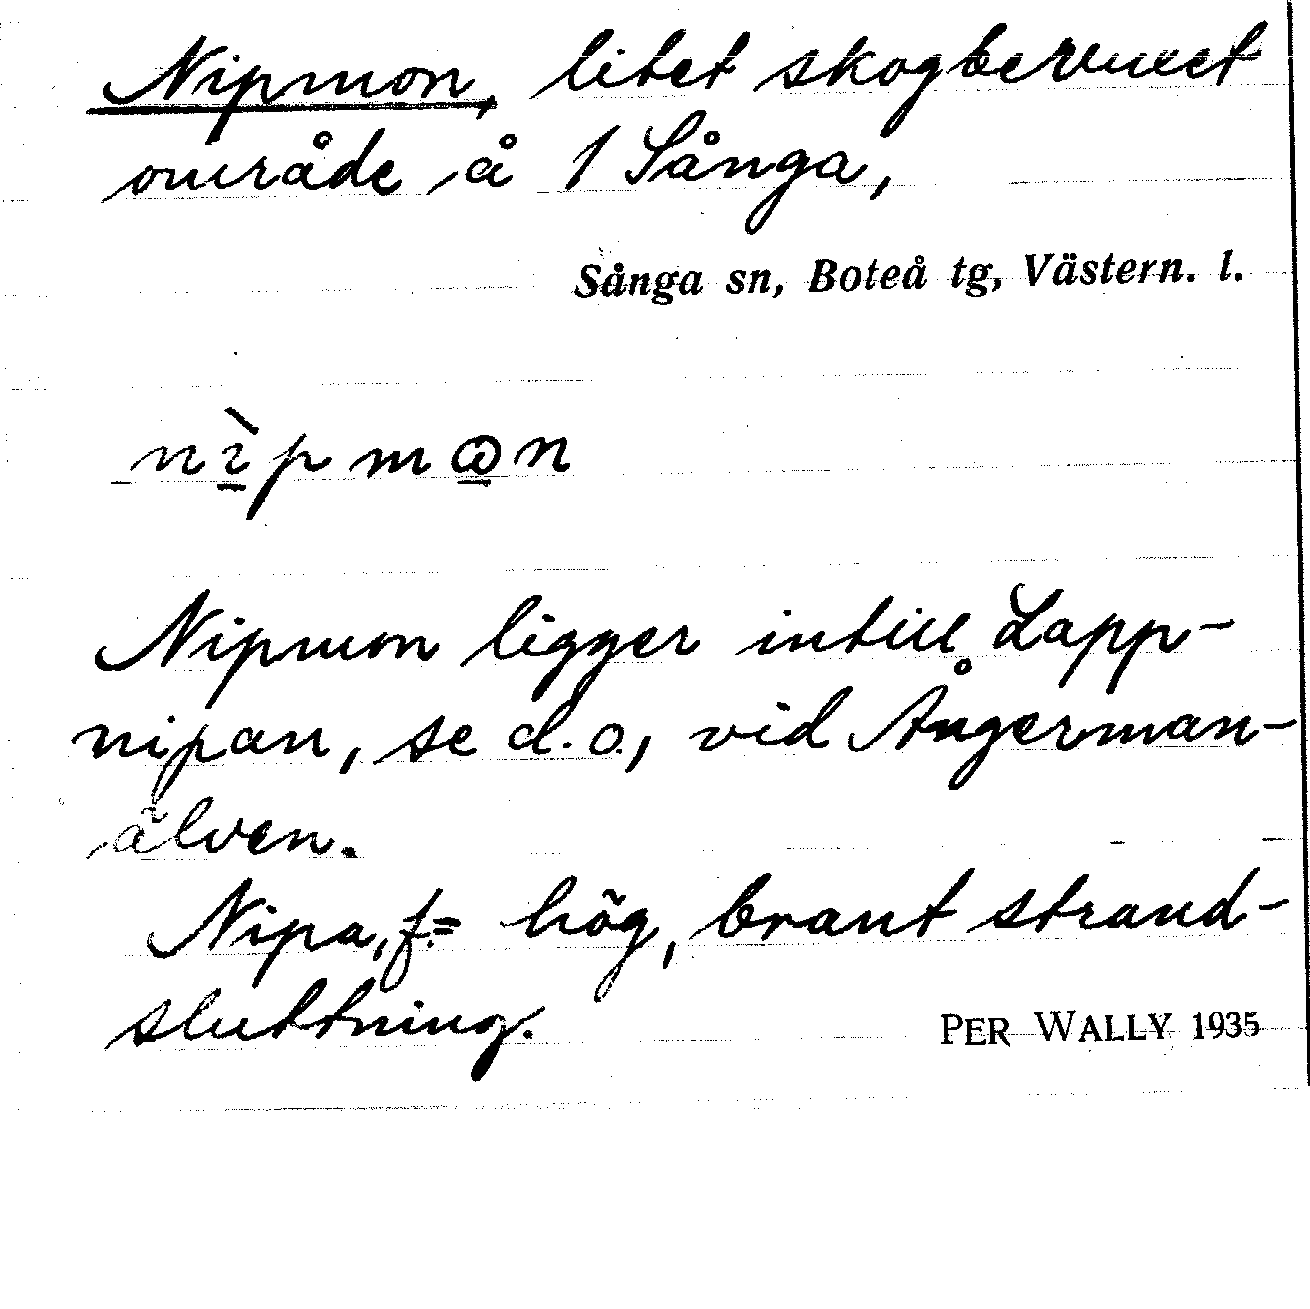 Nipmon, litet skogbevuxet
område å 1 Sånga,
Sånga sn, Boteå tg, Västern. l.
nìpmɷn
Nipmon ligger intill Lapp-
nipan, se d.o., vid Ångerman-
älven.
Nipa, f.= hög, brant strand-
sluttning.
PER WALLY 1935